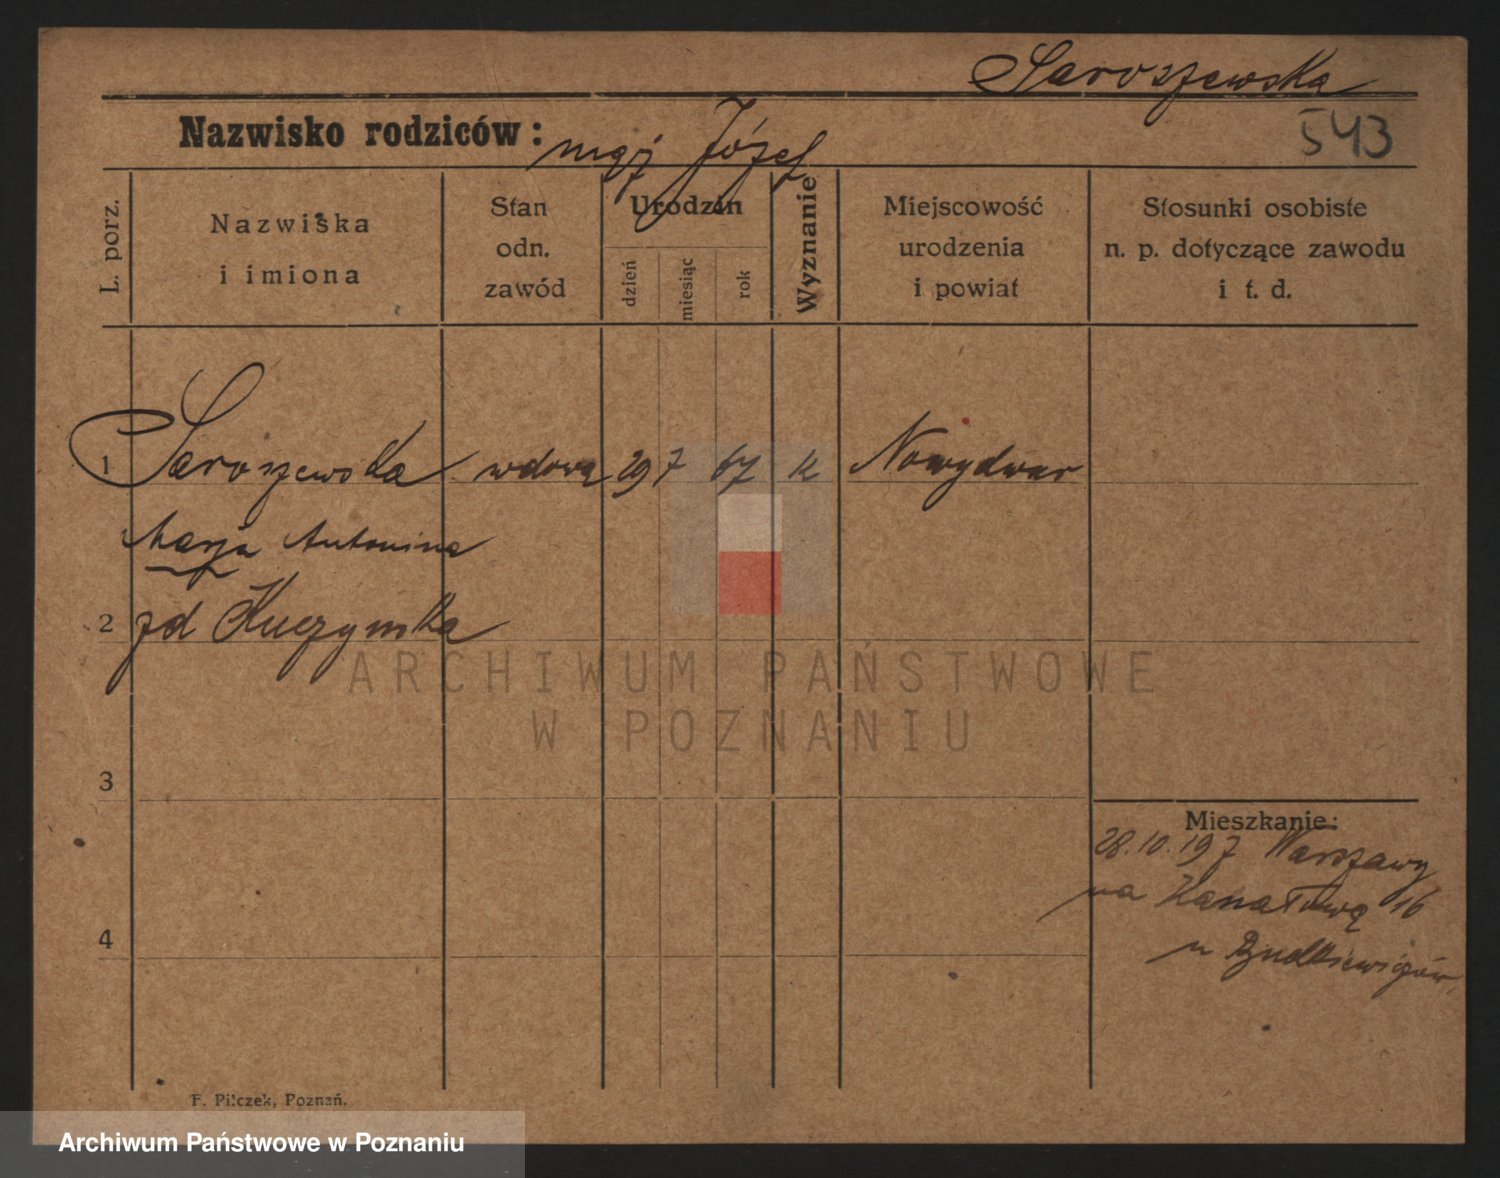 Jaroszewska
543
Nazwisko rodziców: mąż Józef
L. porz.
Nazwiska
i imiona
Stan
odn.
zawód
Urodzin
dzień
miesiąc
rok
Wyznanie
Miejscowość
urodzenia
i powiat
Stosunki osobiste
n. p. dotyczące zawodu
i t. d.
1 Jaroszewska wdowa 29 7 67 k Nowydwar
Marja Antonina
2 zd Kuczynska
ARCHIWUM PAŃSTWOWE
W POZNANIU
3
Mieszkanie:
28.10.19 z Warszawy
na Kanałową 16
4
u Rudkiewiczów
F. Pilczek, Poznań.
Archiwum Państwowe w Poznaniu